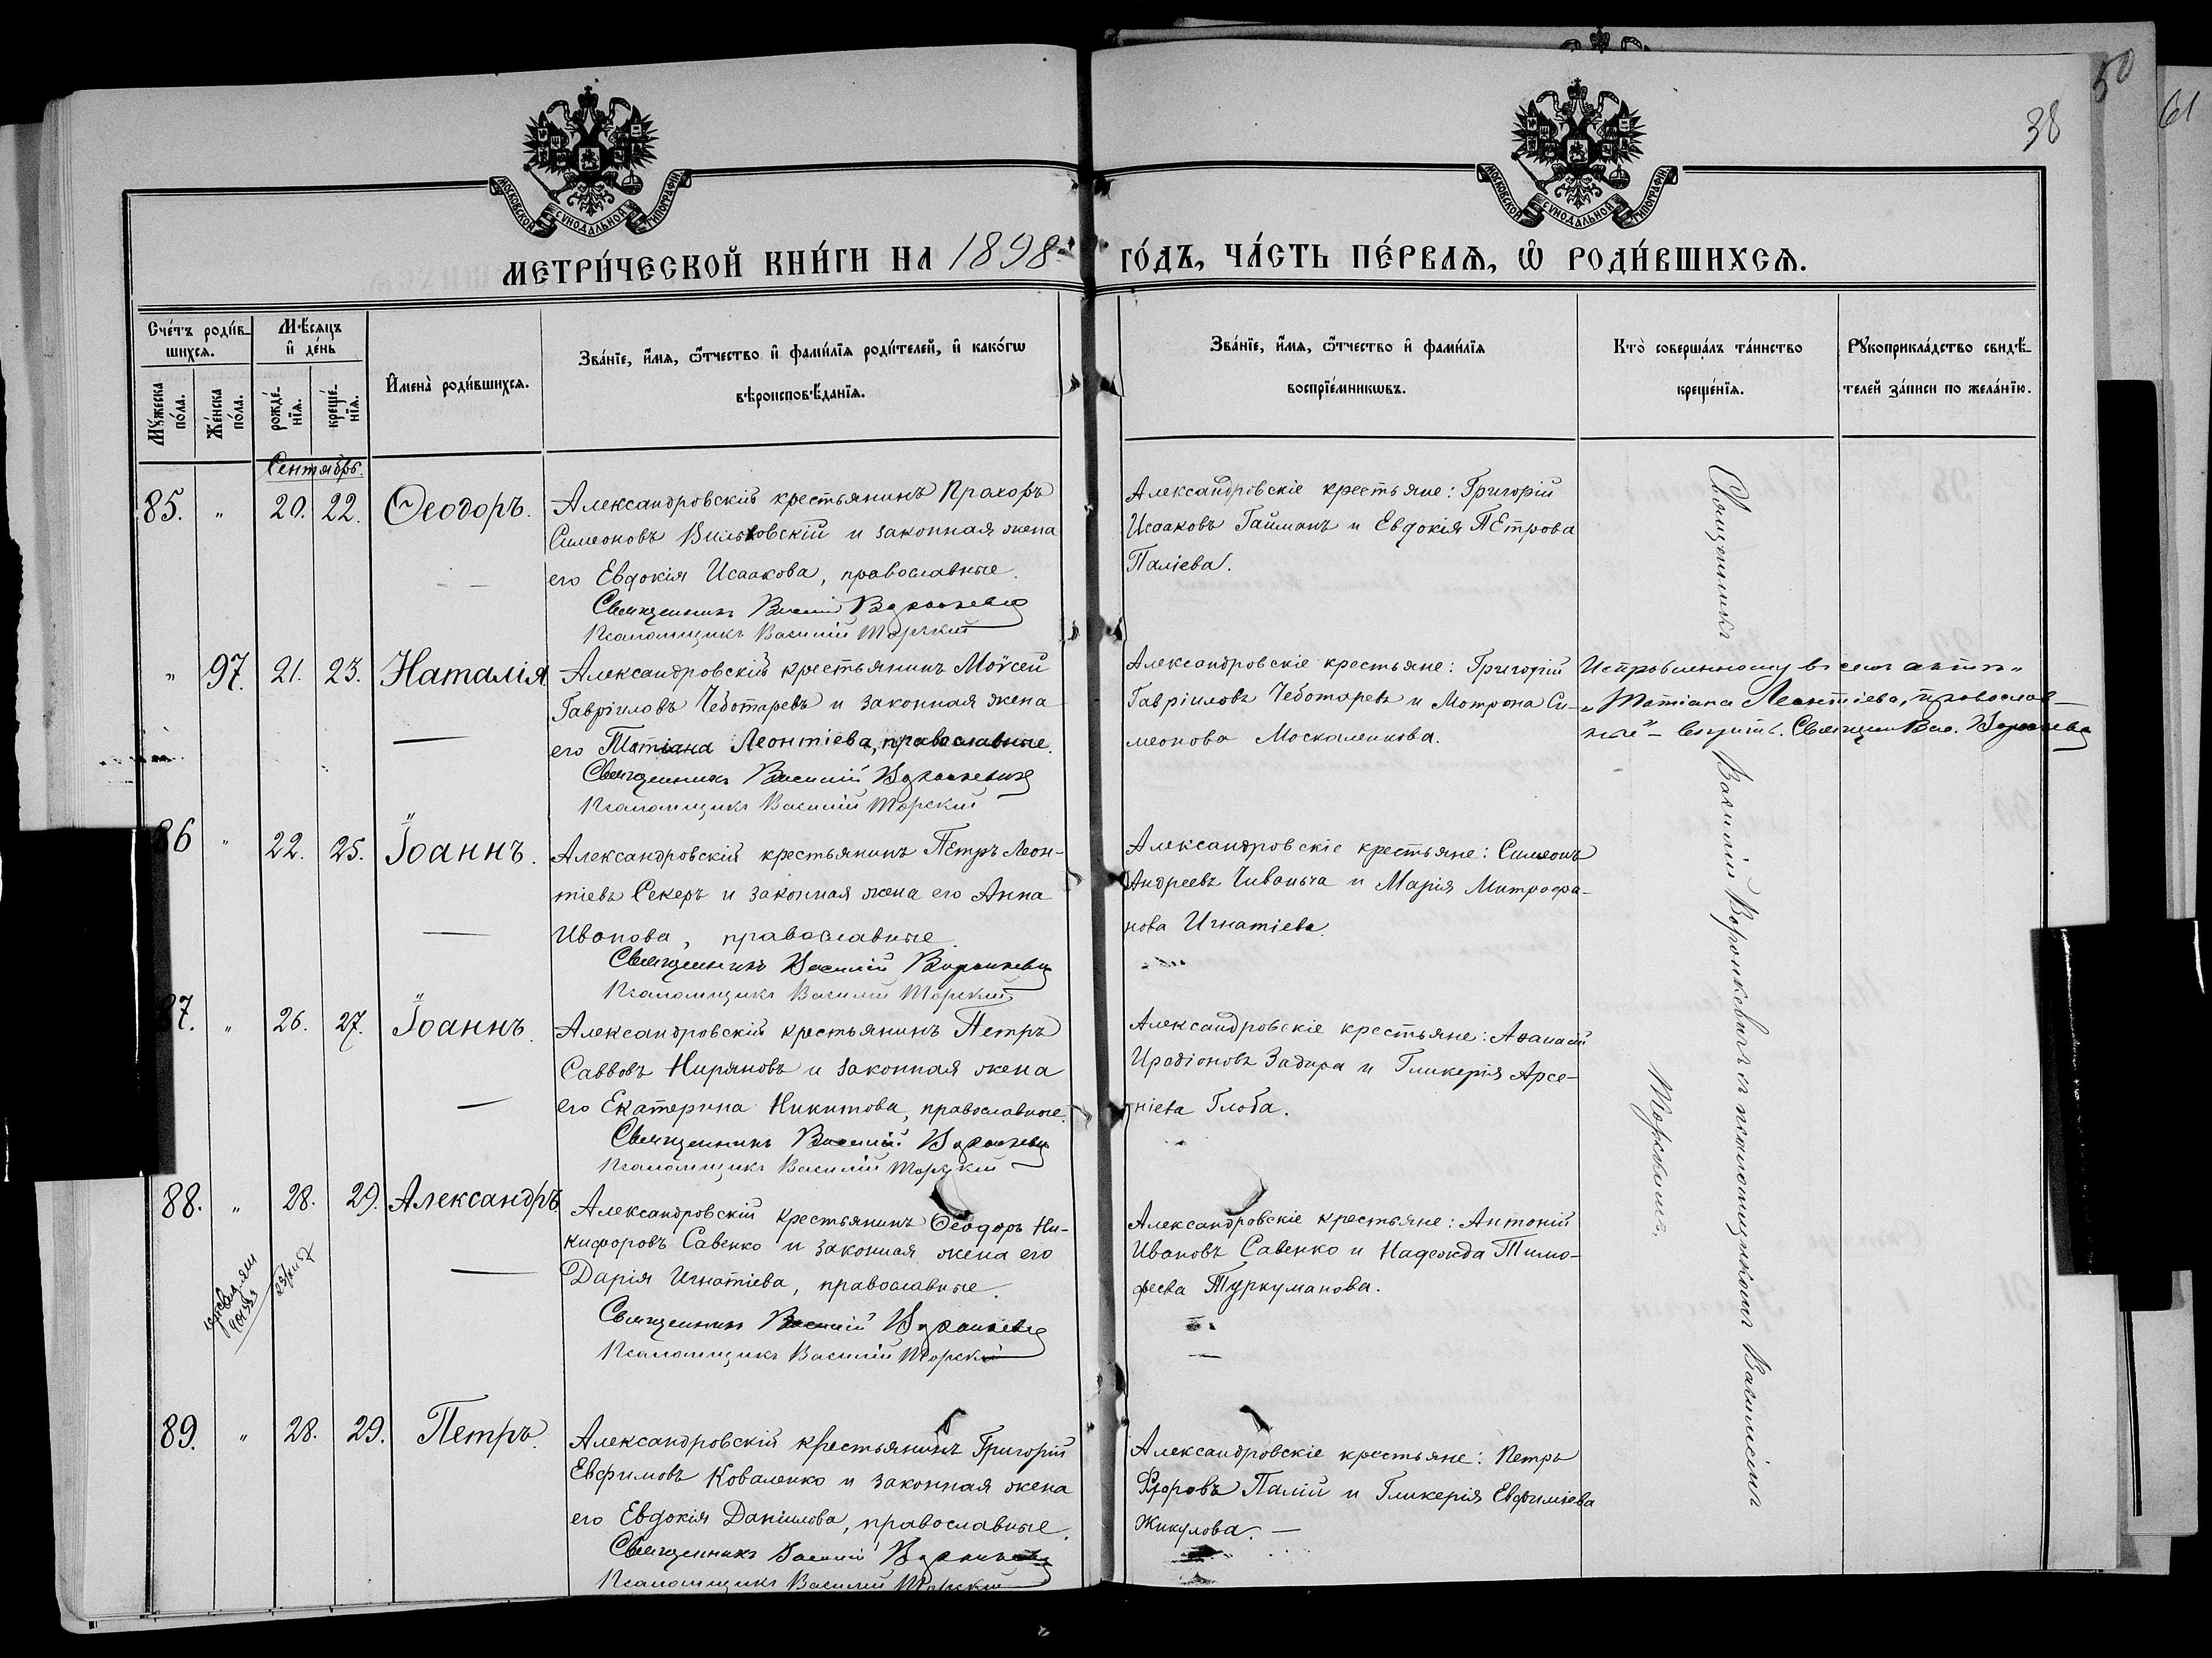 38
50
61
МОСКОВСКОЙ СѴНОДАЛЬНОЙ ТИПОГРАФІИ
МОСКОВСКОЙ СѴНОДАЛЬНОЙ ТИПОГРАФІИ
МЕТРИ́ЧЕСКОЙ КНИ́ГИ НА 1898 ГО́ДЪ, ЧА́СТЬ ПЕ́РВАѦ, Ѡ҆ РОДИ́ВШИХСѦ.
Сче́тъ роди́в-
шихсѧ.
Мѹ́жеска
по́ла.
Же́нска
по́ла.
Мѣ́сѧцъ
и҆ де́нь
рожде́-
нїѧ.
креще́-
нїѧ.
И҆мена̀ роди́вшихсѧ.
Зва́нїе, и҆́мѧ, ѻ҆́тчество и҆ фами́лїѧ роди́телей, и҆ како́гѡ
вѣроисповѣ́данїѧ.
Зва́нїе, и҆́мѧ, ѻ҆́тчество и҆ фами́лїѧ
воспрїе́мникѡвъ.
Кто̀ соверша́лъ та́инство
креще́нїѧ.
Рѹкоприкла́дство свидѣ́-
телей за́писи по жела́нїю.
Сентябрь.
85. " 20. 22. Ѳеодоръ.
Александровскій крестьянинъ Прохоръ
Симеоновъ Вильховскій и законная жена
его Евдокія Исаакова, православные.
Священникъ Василій Воронкевичъ
Псаломщикъ Василій Торскій
Александровскіе крестьяне: Григорій
Исааковъ Гайманъ и Евдокія Петрова
Паліева.
" 97. 21. 23. Наталія
Александровскій крестьянинъ Моѵсей
Гавріиловъ Чеботаревъ и законная жена
его Татіана Леонтіева, православные.
Священникъ Василій Воронкевичъ
Псаломщикъ Василій Торскій
Александровскіе крестьяне: Григорій
Гавріиловъ Чеботаревъ и Мотрона Си-
меонова Москаленкова.
Исправленному въ семъ актѣ
"Татіана Леонтіева, православ-
ные" - вѣрить. Священ. Вас. Воронкевичъ
86 " 22. 25. Іоаннъ.
Александровскій крестьянинъ Петръ Леон-
тіевъ Секеръ и законная жена его Анна
Иванова, православные.
Священникъ Василій Воронкевичъ
Псаломщикъ Василій Торскій
Александровскіе крестьяне: Симеонъ
Андреевъ Чиванча и Марія Митрофа-
нова Игнатіева.
87. " 26. 27. Іоаннъ.
Александровскій крестьянинъ Петръ
Саввовъ Ниряновъ и законная жена
его Екатерина Никитова, православные.
Священникъ Василій Воронкевичъ
Псаломщикъ Василій Торскій
Александровскіе крестьяне: Аѳанасій
Иродіоновъ Задира и Гликерія Арсе-
ніева Глоба.
88. " 28. 29. Александръ
23/XII 57
Александровскій крестьянинъ Ѳеодоръ Ни-
кифоровъ Савенко и законная жена его
Дарія Игнатіева, православные.
Священникъ Василій Воронкевичъ
Псаломщикъ Василій Торскій
Александровскіе крестьяне: Антоній
Ивановъ Савенко и Надежда Тимо-
феева Туркуманова.
89. " 28. 29. Петръ.
Александровскій крестьянинъ Григорій
Евфимовъ Коваленко и законная жена
его Евдокія Даніилова, православные.
Священникъ Василій Воронкевичъ
Псаломщикъ Василій Торскій
Александровскіе крестьяне: Петръ
Палій и Гликерія Евфиміева
Жикулова. -
Священникъ Василій Воронкевичъ съ псаломщикомъ Василіемъ
Торскимъ.